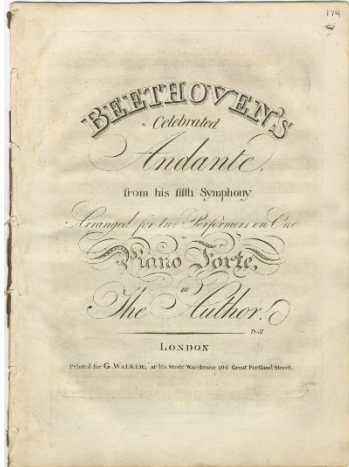 BEETHOVEN'S
Celebrated
Andante.
from his fifth Symphony
Arranged for two Performers on One
Piano Forte,
BY
The Author.
Pr. 3/.
LONDON
Printed for G. WALKER, at his Music Warehouse 106 Great Portland Street.